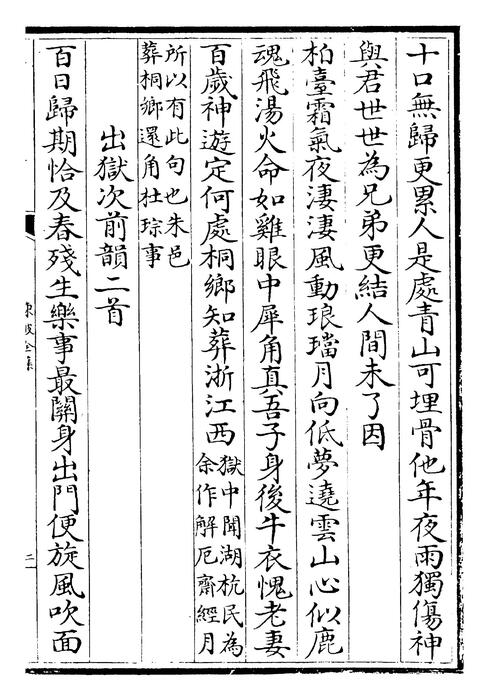 十口無歸更累人是處青山可埋骨他年夜雨獨傷神
與君世世為兄弟更結人間未了因
柏臺霜氣夜淒淒風動琅璫月向低夢遶雲山心似鹿
魂飛湯火命如雞眼中犀角真吾子身後牛衣愧老妻
百歲神遊定何處桐鄉知葬浙江西獄中聞湖杭民為
余作解厄齋經月
所以有此句也朱邑
葬桐鄉還角杜琮事
出獄次前韻二首
百日歸期恰及春殘生樂事最關身出門便旋風吹面
東坡全集
二